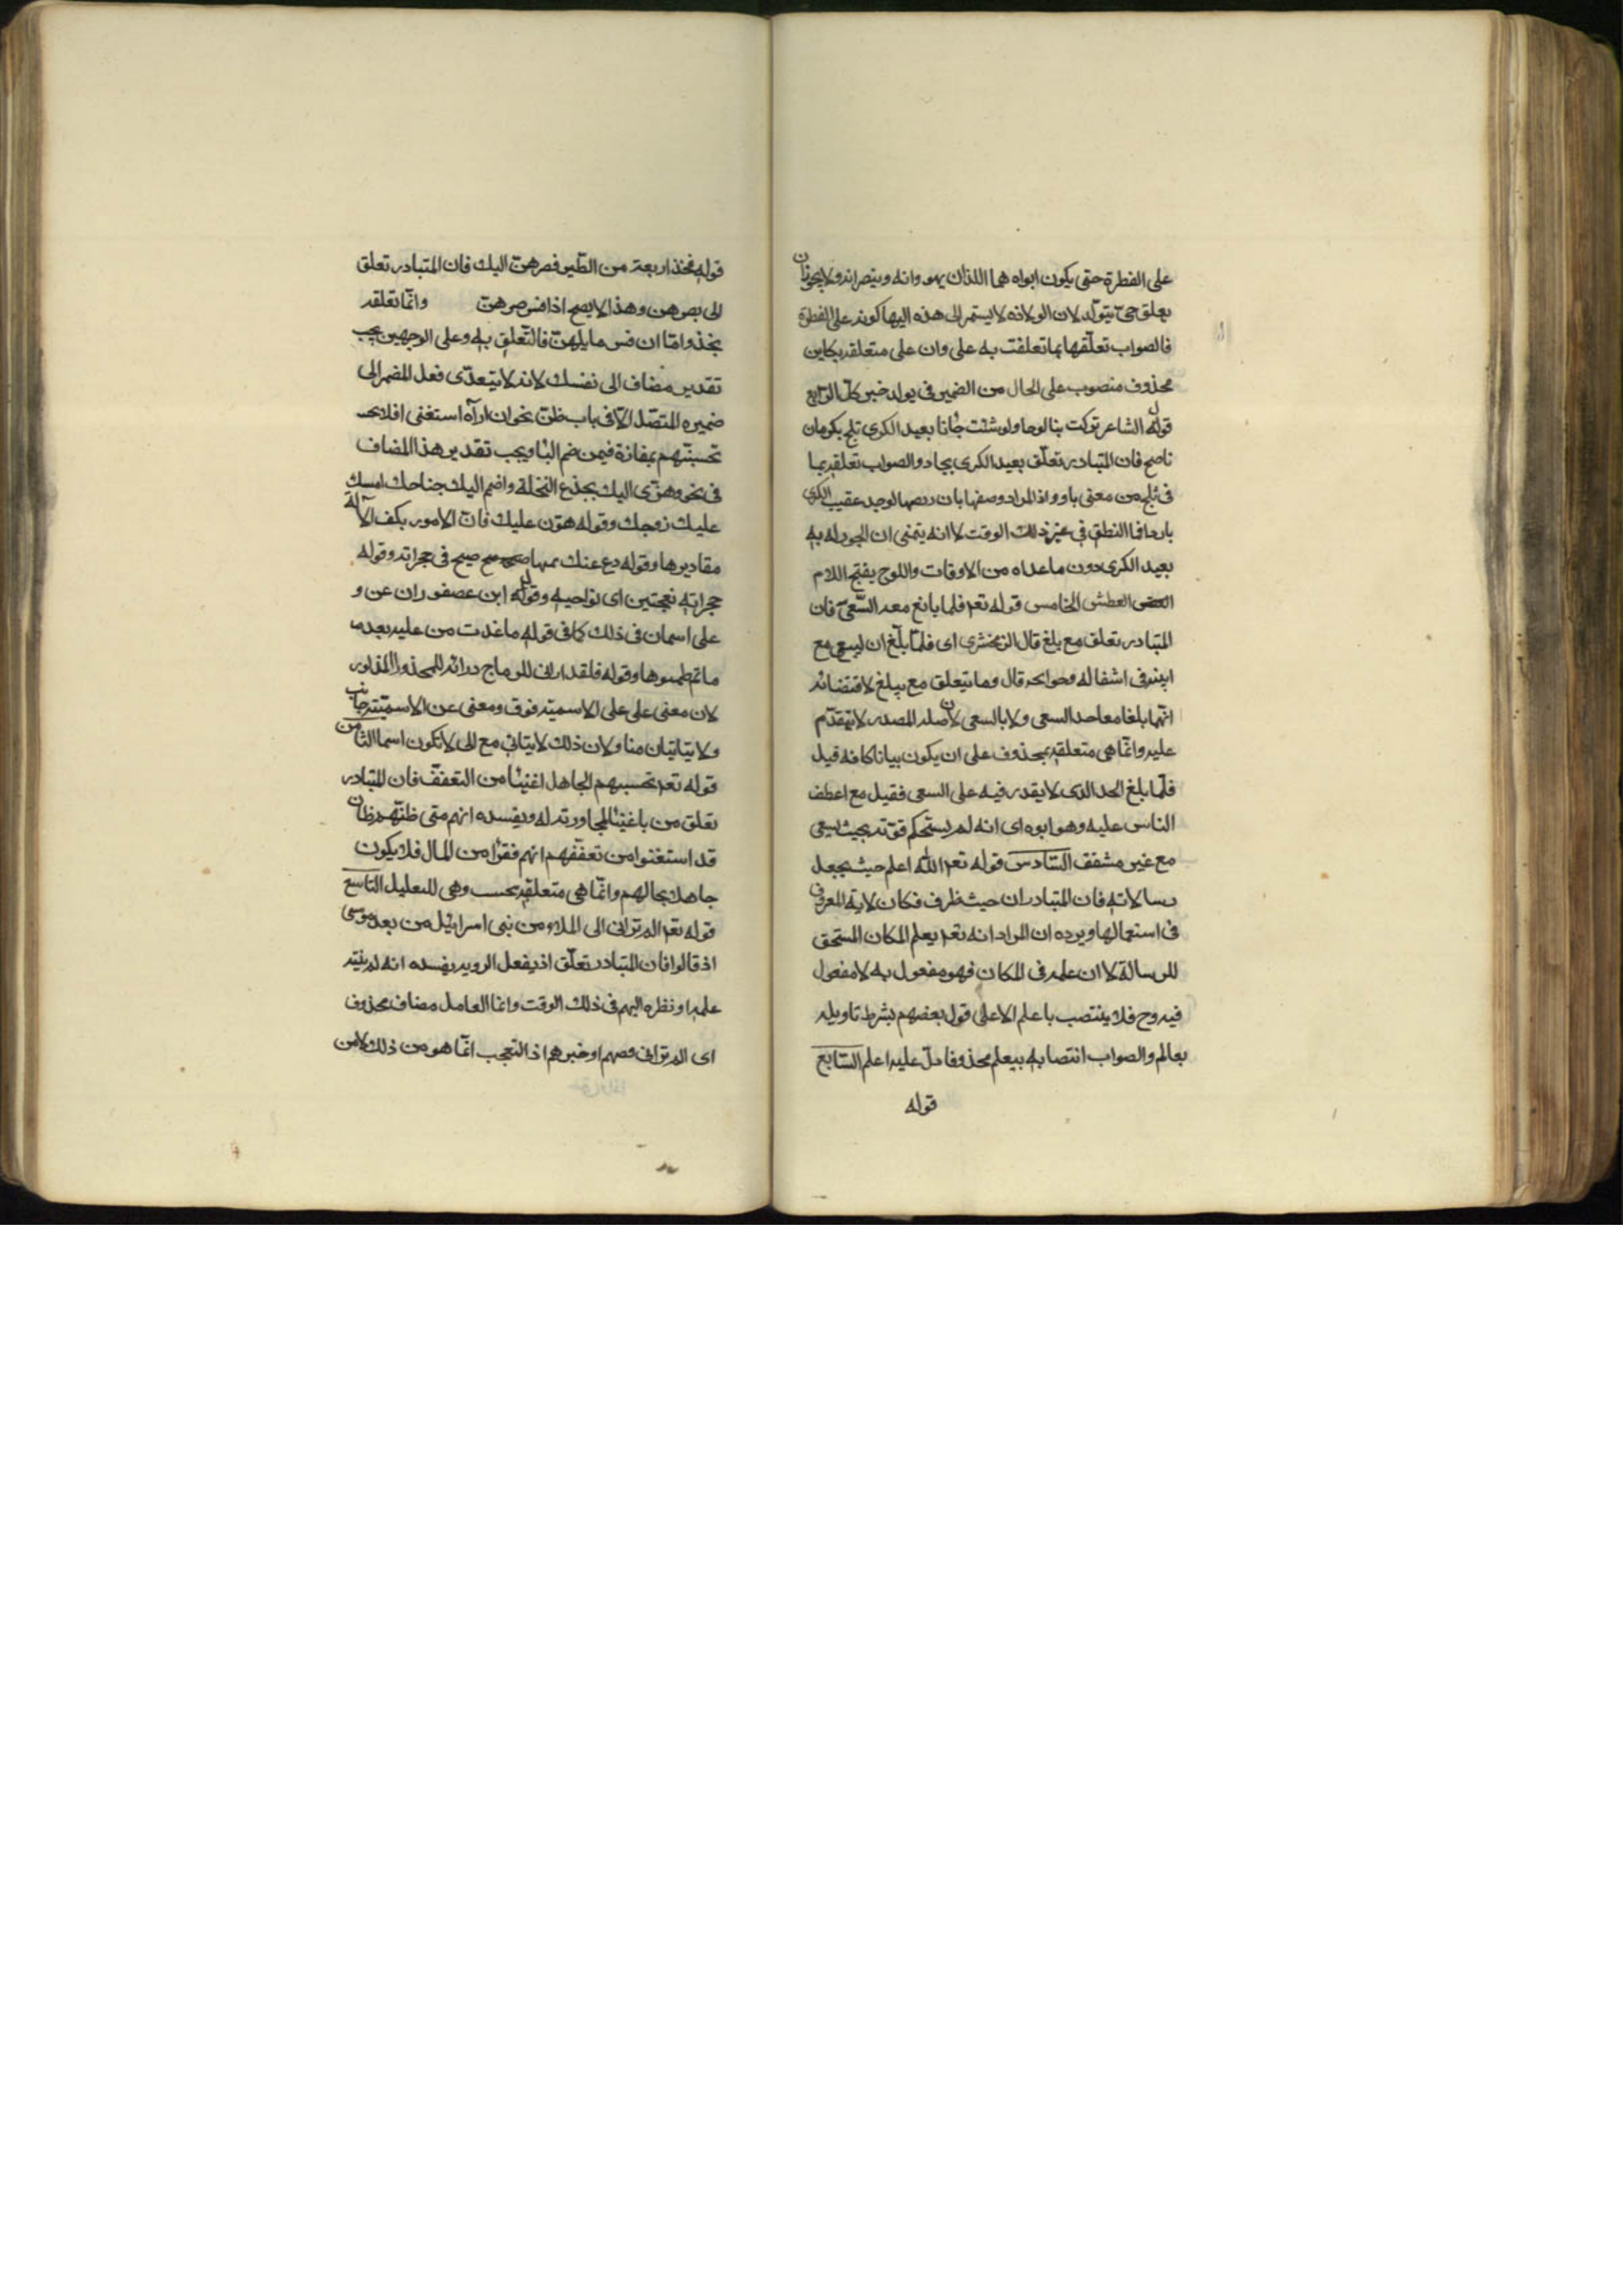 على الفطرة حتى يكون ابواه هما اللذان يهودانه وينصرانه ولا يجوز ان
يعلق حتى بيولد لان الولادة لا يستمر الى هذه اليها كونه على الفطرة
فالصواب تعلقها بما تعلقت به على وان على متعلقه بكاين
محذوف منصوب على الحال من الضمير في يولد خبر كل الرابع
قول الشاعر تركت بنا لوحا ولو شئت جادنا بعيد الكرى ثلج بكرمان
ناصح فان المتبادر تعلق بعيد الكرى بجاد والصواب تعلقه بما
في ثلج من معنى بارد اذ المراد وصفها بان ريقها يوجد عقيب الكرى
باردا فما الظن في غير ذلك الوقت لا انه يتمنى ان تجود له به
بعيد الكرى دون ما عداه من الاوقات واللوح بفتح اللام
العطش الخامس قوله تعـ فلما بلغ معه السعى فان
المتبادر تعلق مع ببلغ قال الزمخشرى اى فلما بلغ ان يسعى مع
ابيه في اشغاله وحوائجه قال وما يتعلق مع ببلغ لاقتضائه
انهما بلغا معا حد السعى ولا بالسعى لان صلة المصدر لا تتقدم
عليه وانما هى متعلقه بمحذوف على ان يكون بيانا كانه قيل
فلما بلغ الحد الذى لا يقدر فيه على السعى فقيل مع اعطف
الناس عليه وهو ابوه اى انه لم يستحكم قوته بحيث يسعى
مع غير مشفق السادس قوله تعـ الله اعلم حيث يجعل
رسالاته فان المتبادر ان حيث ظرف مكان لانه المعروف
فى استعمالها ويرده ان المراد انه تعـ يعلم المكان المستحق
للرسالة لا ان علمه فى المكان فهو مفعول به لا مفعول
فيه وح فلا ينتصب باعلم الا على قول بعضهم بشرط تاويله
بعالم والصواب انتصابه بيعلم محذوفا دل عليه اعلم السابع
قوله
قوله فخذ اربعة من الطير فصرهن اليك فان المتبادر تعلق
الى بصرهن وهذا لا يصح اذا فسر صرهن وانما تعلقه
بخذ واما ان فسر باملهن فالتعلق به وعلى الوجهين يجب
تقدير مضاف الى نفسك لانه لا يتعدى فعل المضمر الى
ضميره المتصل الا فى باب ظن نحو ان رآه استغنى افلا
تحسبنهم بمفازة فيمن ضم البا ويجب تقدير هذا المضاف
فى نحو وهزى اليك بجذع النخلة واضمم اليك جناحك امسك
عليك زوجك وقوله هون عليك فان الامور بكف الاله
مقاديرها وقوله دع عنك نهبا صيح فى حجراته وقوله
حجراته بفتحتين اى نواحيه وقول ابن عصفور ان عن و
على اسمان فى ذلك كما فى قوله ما غدت من عليه بعد ما
ما تم ظمئوها وقوله فلقد ارانى للرماح دريئة
لان معنى على على الاسمية فوق ومعنى عن الاسمية جانب
ولا يتاتيان هنا ولان ذلك لا يتاتى مع الى لا تكون اسما الثامن
قوله تعـ تحسبهم الجاهل اغنيا من التعفف فان المتبادر
تعلق من باغنيا لمجاورته له ويفسده انهم متى ظنهم ظان
قد استغنوا من تعففهم انهم فقرا من المال فلا يكون
جاهلا بحالهم وانما هى متعلقه بحسب وهى للتعليل التاسع
قوله تعـ الم تر الى الملاء من بنى اسرائيل من بعد موسى
اذ قالوا فان المتبادر تعلق اذ بفعل الروية ويفسده انه لم ينته
علمه او نظره اليهم فى ذلك الوقت وانما العامل مضاف محذوف
اى الم تر الى قصتهم او خبرهم اذ التعجب انما هو من ذلك لا من